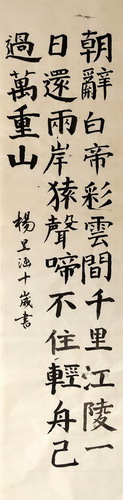 朝辭白帝彩雲間千里江陵一
日還兩岸猿聲啼不住輕舟已
過萬重山
楊昱涵十歲書